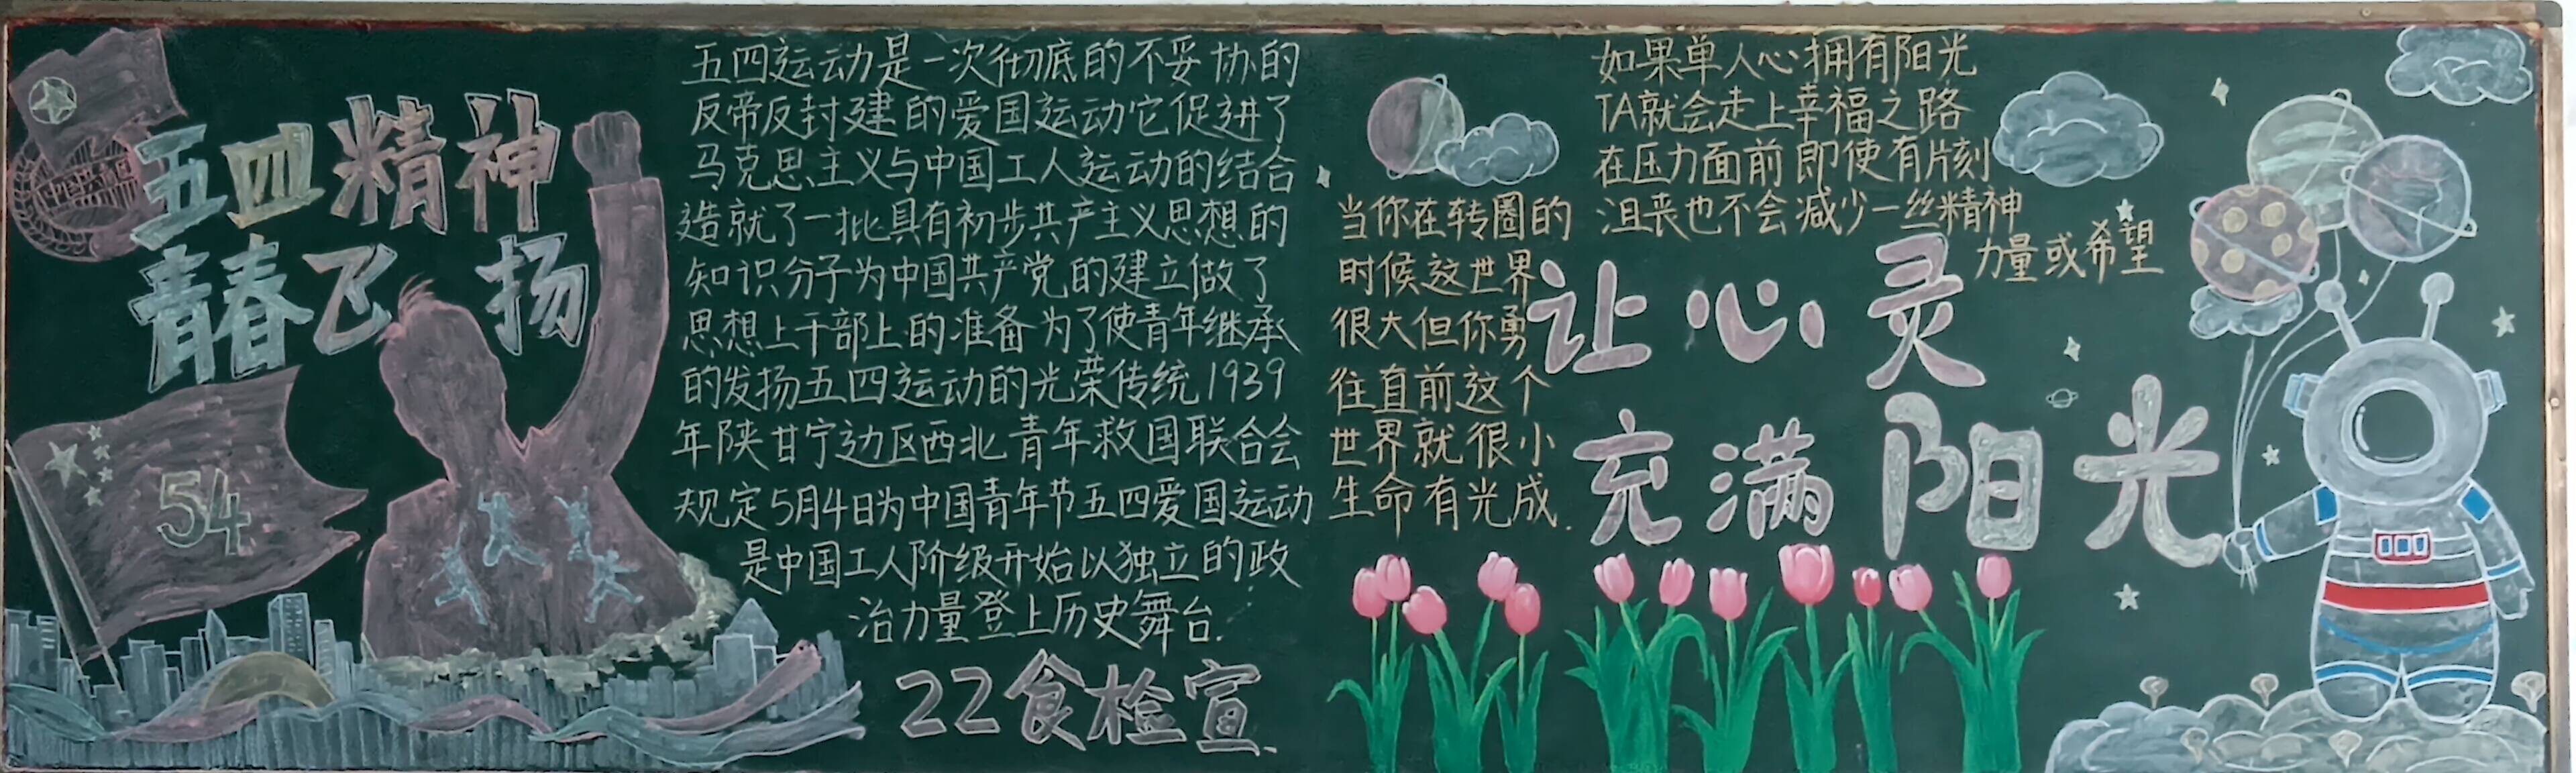 五四精神
青春飞扬
54
五四运动是一次彻底的不妥协的
反帝反封建的爱国运动它促进了
马克思主义与中国工人运动的结合
造就了一批具有初步共产主义思想的
知识分子为中国共产党的建立做了
思想上干部上的准备为了使青年继承
的发扬五四运动的光荣传统1939
年陕甘宁边区西北青年救国联合会
规定5月4日为中国青年节五四爱国运动
是中国工人阶级开始以独立的政
治力量登上历史舞台.
22食检宣
当你在转圈的
时候这世界
很大但你勇
往直前这个
世界就很小
生命有光成.
如果单人心拥有阳光
TA就会走上幸福之路
在压力面前即使有片刻
沮丧也不会减少一丝精神
力量或希望
让心灵
充满阳光